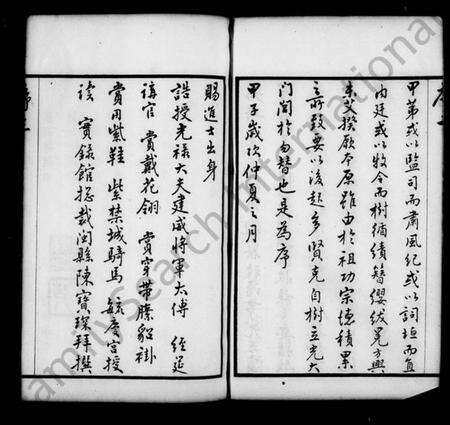 甲第或以監司而肅風紀或以詞垣而直
內廷或以收令而樹循績簪纓紱冕方興
未艾揆厥本原雖由於祖功宗德積累
之所致要以後起多賢克自樹立光大
門閭於勿替也是為序
甲子歲次仲夏之月
賜進士出身
誥授光祿大夫建威將軍太傅 經筵
講官 賞戴花翎 賞穿帶膆貂褂
賞用紫韁 紫禁城騎馬 毓慶宮授
讀 實錄館總裁閩縣陳寶琛拜撰
FamilySearch International